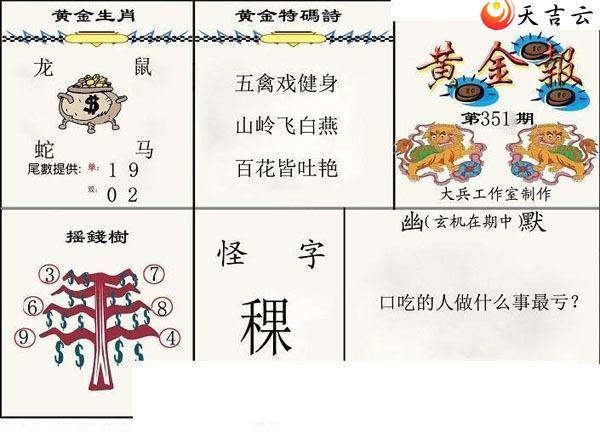 黄金生肖
龙 鼠
$
蛇 马
尾數提供：单：1 9
双：0 2
黄金特碼詩
五禽戏健身
山岭飞白燕
百花皆吐艳
天吉云
黄金報
第351期
大兵工作室制作
摇錢樹
3 7
6 8
9 4
怪 字
稞
幽(玄机在期中)默
口吃的人做什么事最亏？